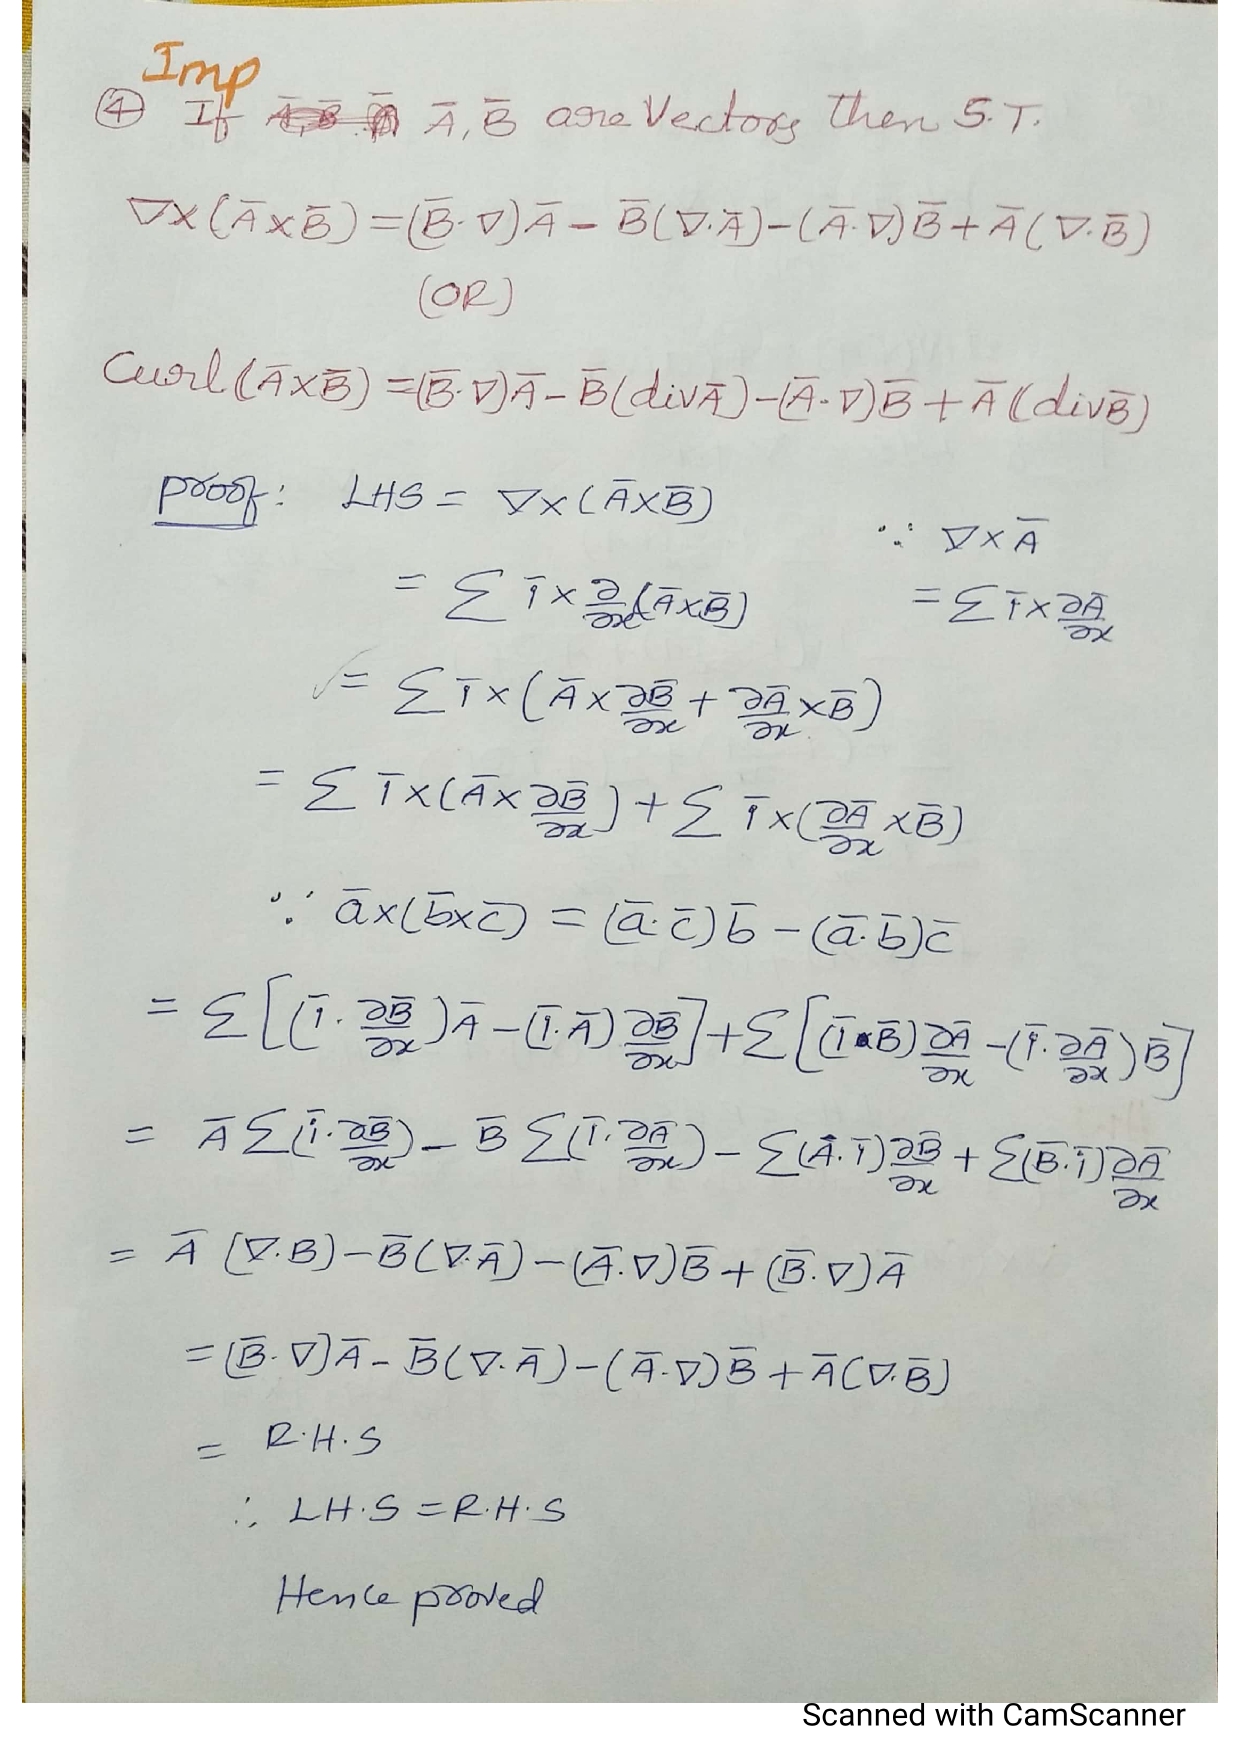 Imp
④ If A̅, B̅ are Vectors then S.T.
∇×(A̅×B̅) = (B̅·∇)A̅ − B̅(∇·A̅) − (A̅·∇)B̅ + A̅(∇·B̅)
(OR)
Curl(A̅×B̅) = (B̅·∇)A̅ − B̅(divA̅) − (A̅·∇)B̅ + A̅(divB̅)
proof: LHS = ∇×(A̅×B̅)
∵ ∇×A̅
= Σ i̅×∂/∂x(A̅×B̅)
= Σ i̅×∂A̅/∂x
= Σ i̅×(A̅×∂B̅/∂x + ∂A̅/∂x×B̅)
= Σ i̅×(A̅×∂B̅/∂x) + Σ i̅×(∂A̅/∂x×B̅)
∵ a̅×(b̅×c̅) = (a̅·c̅)b̅ − (a̅·b̅)c̅
= Σ[(i̅·∂B̅/∂x)A̅ − (i̅·A̅)∂B̅/∂x] + Σ[(i̅·B̅)∂A̅/∂x − (i̅·∂A̅/∂x)B̅]
= A̅ Σ(i̅·∂B̅/∂x) − B̅ Σ(i̅·∂A̅/∂x) − Σ(A̅·i̅)∂B̅/∂x + Σ(B̅·i̅)∂A̅/∂x
= A̅ (∇·B) − B̅(∇·A̅) − (A̅·∇)B̅ + (B̅·∇)A̅
= (B̅·∇)A̅ − B̅(∇·A̅) − (A̅·∇)B̅ + A̅(∇·B̅)
= R.H.S
∴ LH.S = R.H.S
Hence proved
Scanned with CamScanner